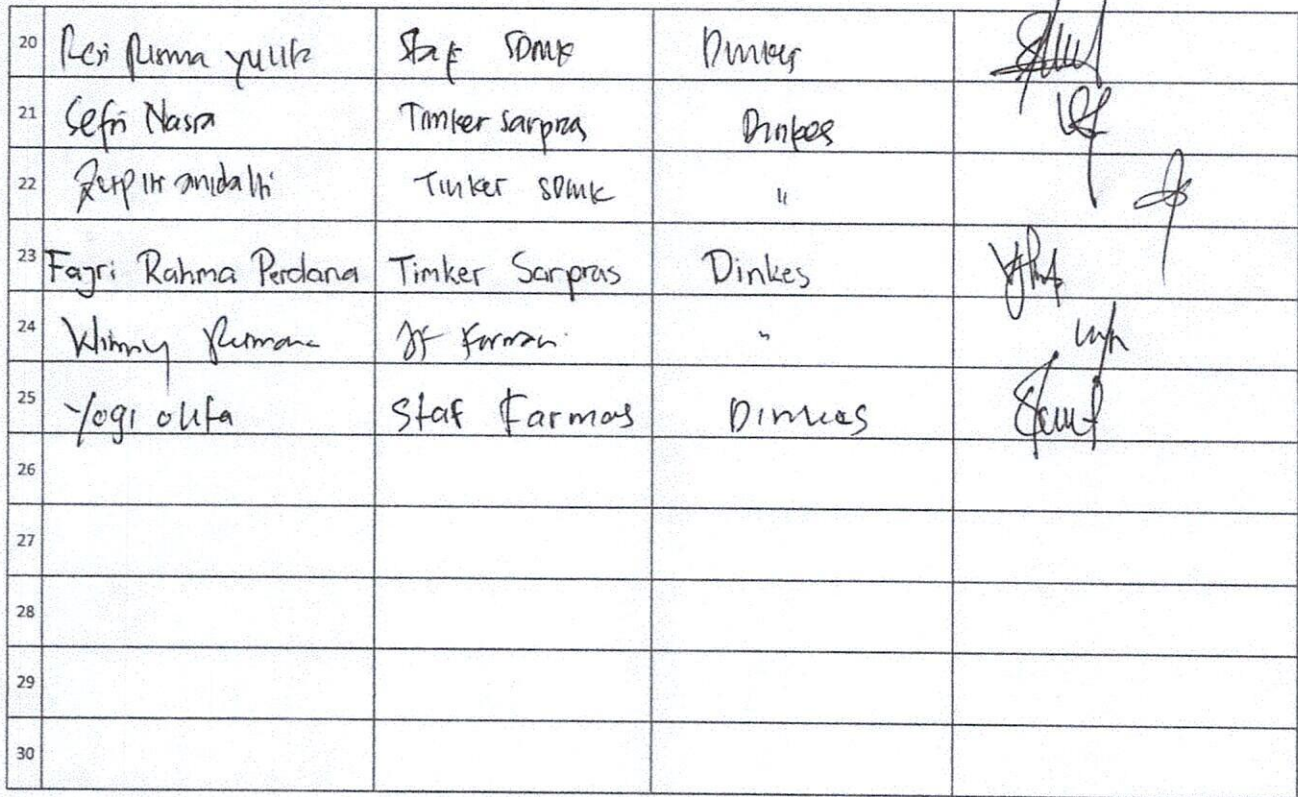 20 Resi Risma Yulia Staf SDMK Dinkes
21 Sefri Nasra Timker Sarpras Dinkes
22 Timker SDMK "
23 Fajri Rahma Perdana Timker Sarpras Dinkes
24 JF "
25 Yogi Staf Farmas Dinkes
26
27
28
29
30